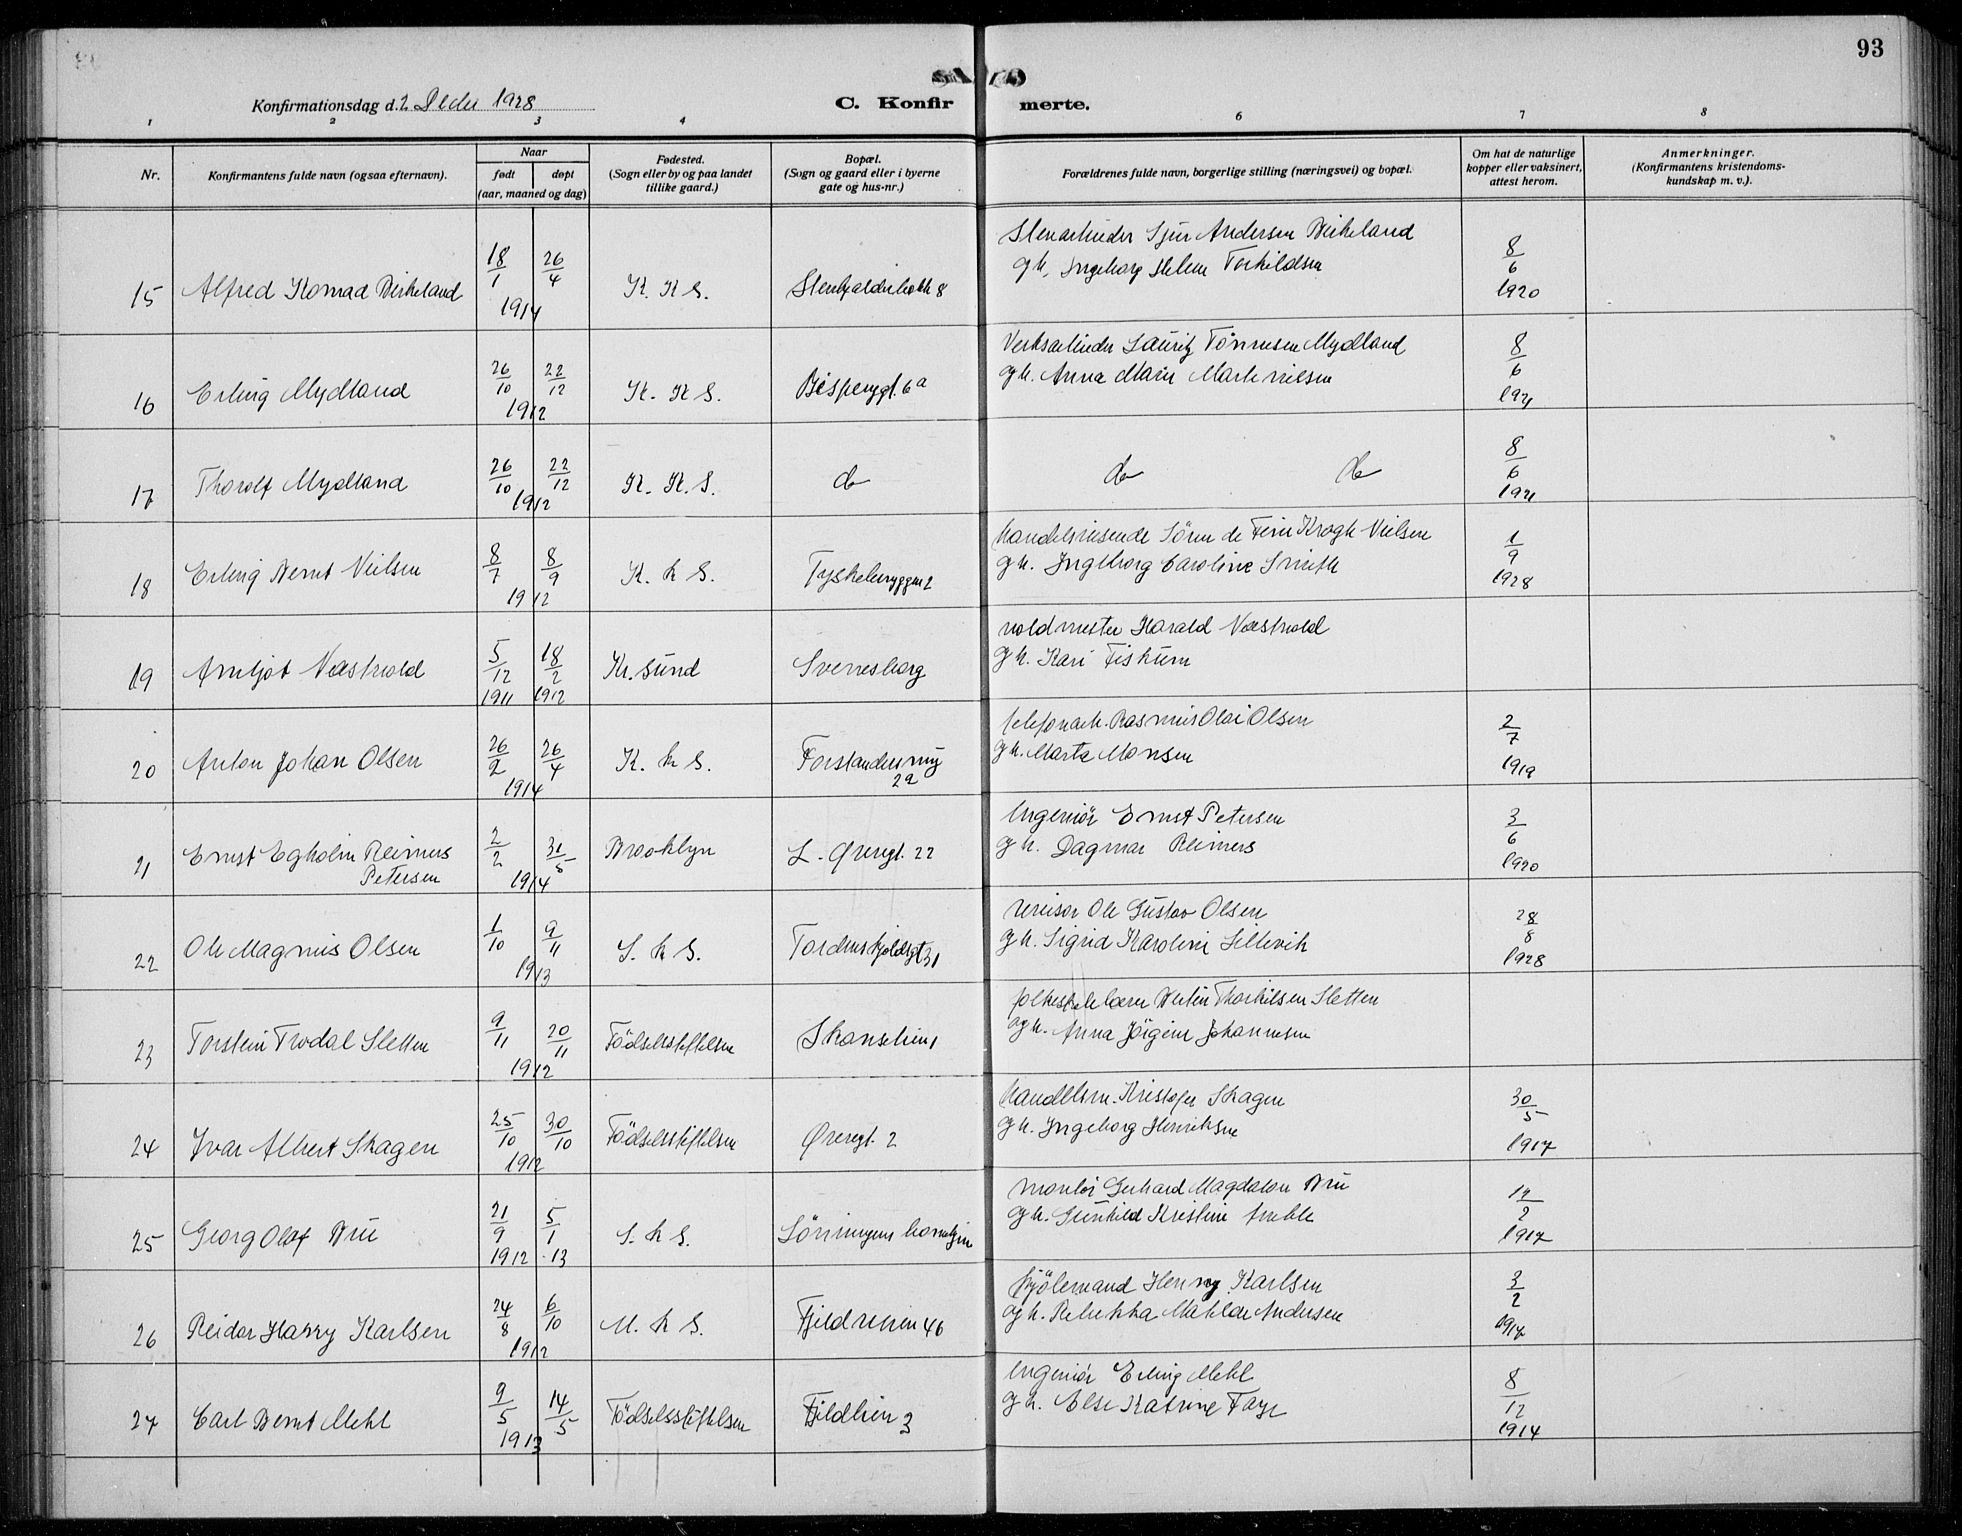 93
Konfirmationsdag d. 2 Decbr 1928
C. Konfirmerte.
1 2 3 4 6 7 8
Nr.
Konfirmantens fulde navn (ogsaa efternavn).
Naar
født døpt
(aar, maaned og dag)
Fødested.
(Sogn eller by og paa landet
tillike gaard.)
Bopæl.
(Sogn og gaard eller i byerne
gate og hus-nr.)
Forældrenes fulde navn, borgerlige stilling (næringsvei) og bopæl.
Om hat de naturlige
kopper eller vaksinert,
attest herom.
Anmerkninger.
(Konfirmantens kristendoms-
kundskap m. v.).
Stenarbeider Sjur Andersen Birkeland
15 Alfred Konrad Birkeland 18/1 26/4 1914 K. K. S. 8
og h. Ingeborg Helene Torkildsen 8/6 1920
Verksarbeider Lauritz Tönnesen Mydland
16 Erling Mydland 26/10 22/12 1912 K. K. S. Bispengt. 6a
og h. Anna Marie Martinilsen 8/6 1921
17 Thorolf Mydland 26/10 22/12 1912 K. K. S. do do do 8/6 1921
Handelsreisende Sören de Fine Krogh Nielsen
18 Erling Bernt Nielsen 8/7 8/9 1912 K. k S. Tyskebryggen 2
og h. Ingeborg Caroline Smith 1/9 1928
voldmester Harald Næstvold
19 Arnljot Næstvold 5/12 1911 18/2 1912 Kr. sund Sverresborg
og h. Kari Fiskum
telefonarb. Rasmus Olai Olsen
20 Anton Johan Olsen 26/2 26/4 1914 K. k S. Forstandersmug 2a
og h. Marta Monsen 2/7 1919
Ingeniör Ernst Petersen
21 Ernst Egholm Reimers
Petersen 2/2 31/5 1914 Brooklyn L. Øvregt. 22
og h. Dagmar Reimers 3/6 1920
revisor Ole Gustav Olsen
22 Ole Magnus Olsen 1/10 9/11 1913 S. k S. Tordenskjoldsgt 31
og h. Sigrid Karoline Lillevik 28/8 1928
folkeskolelærer Thorkilsen Sletten
23 Torstein Trodal Sletten 9/11 20/11 1912 Födselsstiftelsen Skanselien 1
og h. Anna Jörgine Johannesen
Handelsm. Kristofer Skagen
24 Ivar Albert Skagen 25/10 30/10 1912 Födselsstiftelsen Øvregt. 2
og h. Ingeborg Henriksne 30/5 1917
montör Gerhard Magdalon Bru
25 Georg Olaf Bru 21/9 1912 5/1 13 S. k S.
og h. Gunhild Kristine 17/2 1917
Henry Karlsen
26 Reidar Harry Karlsen 24/8 6/10 1912 M. k S. Fjeldveien 46
og h. Rebekka Matilde Andersen 3/2 1917
Ingeniör Erling Mehl
27 Carl Bernt Mehl 9/5 14/5 1913 Födselsstiftelsen Fjeldlien 3
og h. Else Katrine Faye 8/12 1914